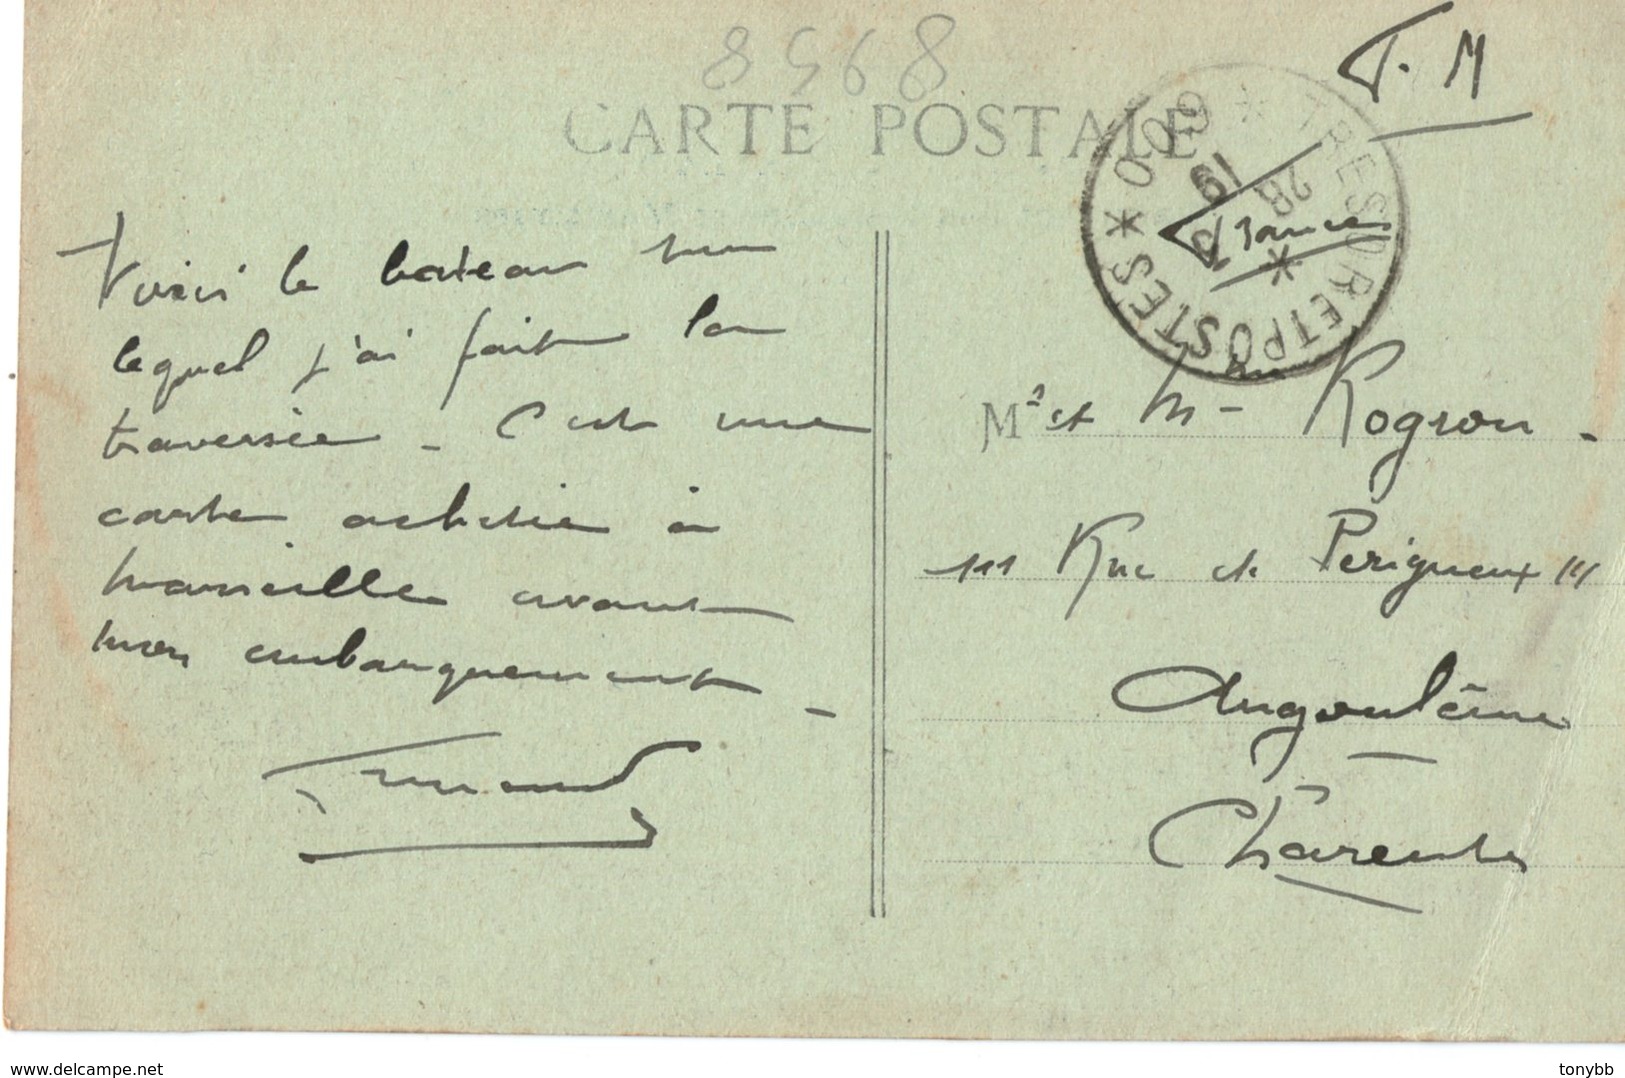 8568
CARTE POSTALE
F. M
TRESOR ET POSTES * 600 *
28
19
France
Voici le bateau sur
lequel j'ai fait la
traversée - C'est une
carte achetée à
Marseille avant
mon embarquement -
Fernand
Mr et Mme Rogron -
111 Rue de Perigueux 111
Angoulême
Charente
www.delcampe.net
tonybb